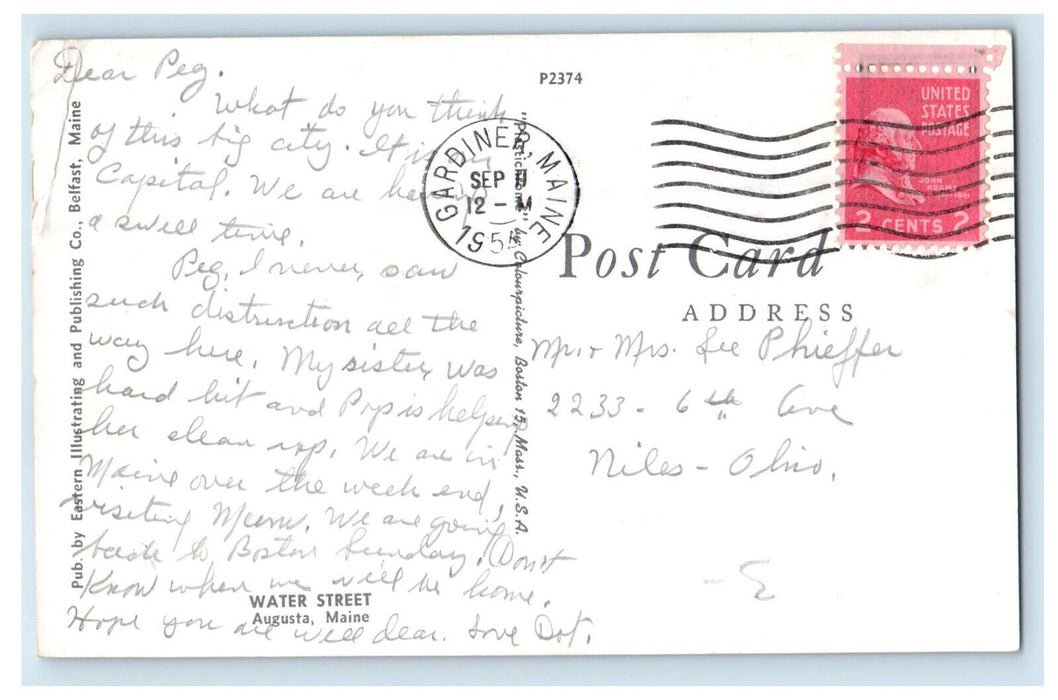 Dear Peg.
What do you think
of this big city. It is
Capital. We are having
a swell time.
Peg, I never, saw
such distruction all the
way here. My sister, was
hard hit and Pop is helping
her clean up. We are in
Maine over the week end,
visiting Mum. We are going
back to Boston Sunday. Don't
Know when we will be home.
Hope you are well dear. Love Dot.
Pub. by Eastern Illustrating and Publishing Co., Belfast, Maine
WATER STREET
Augusta, Maine
P2374
"Plastichrome" by Colourpicture, Boston 15, Mass., U.S.A.
GARDINER, MAINE
SEP
12 - M
1954
UNITED
STATES
POSTAGE
JOHN
ADAMS
2 CENTS 2
Post Card
ADDRESS
Mr. + Mrs. Lee Phieffer
2233 - 6th Ave
Niles - Ohio.